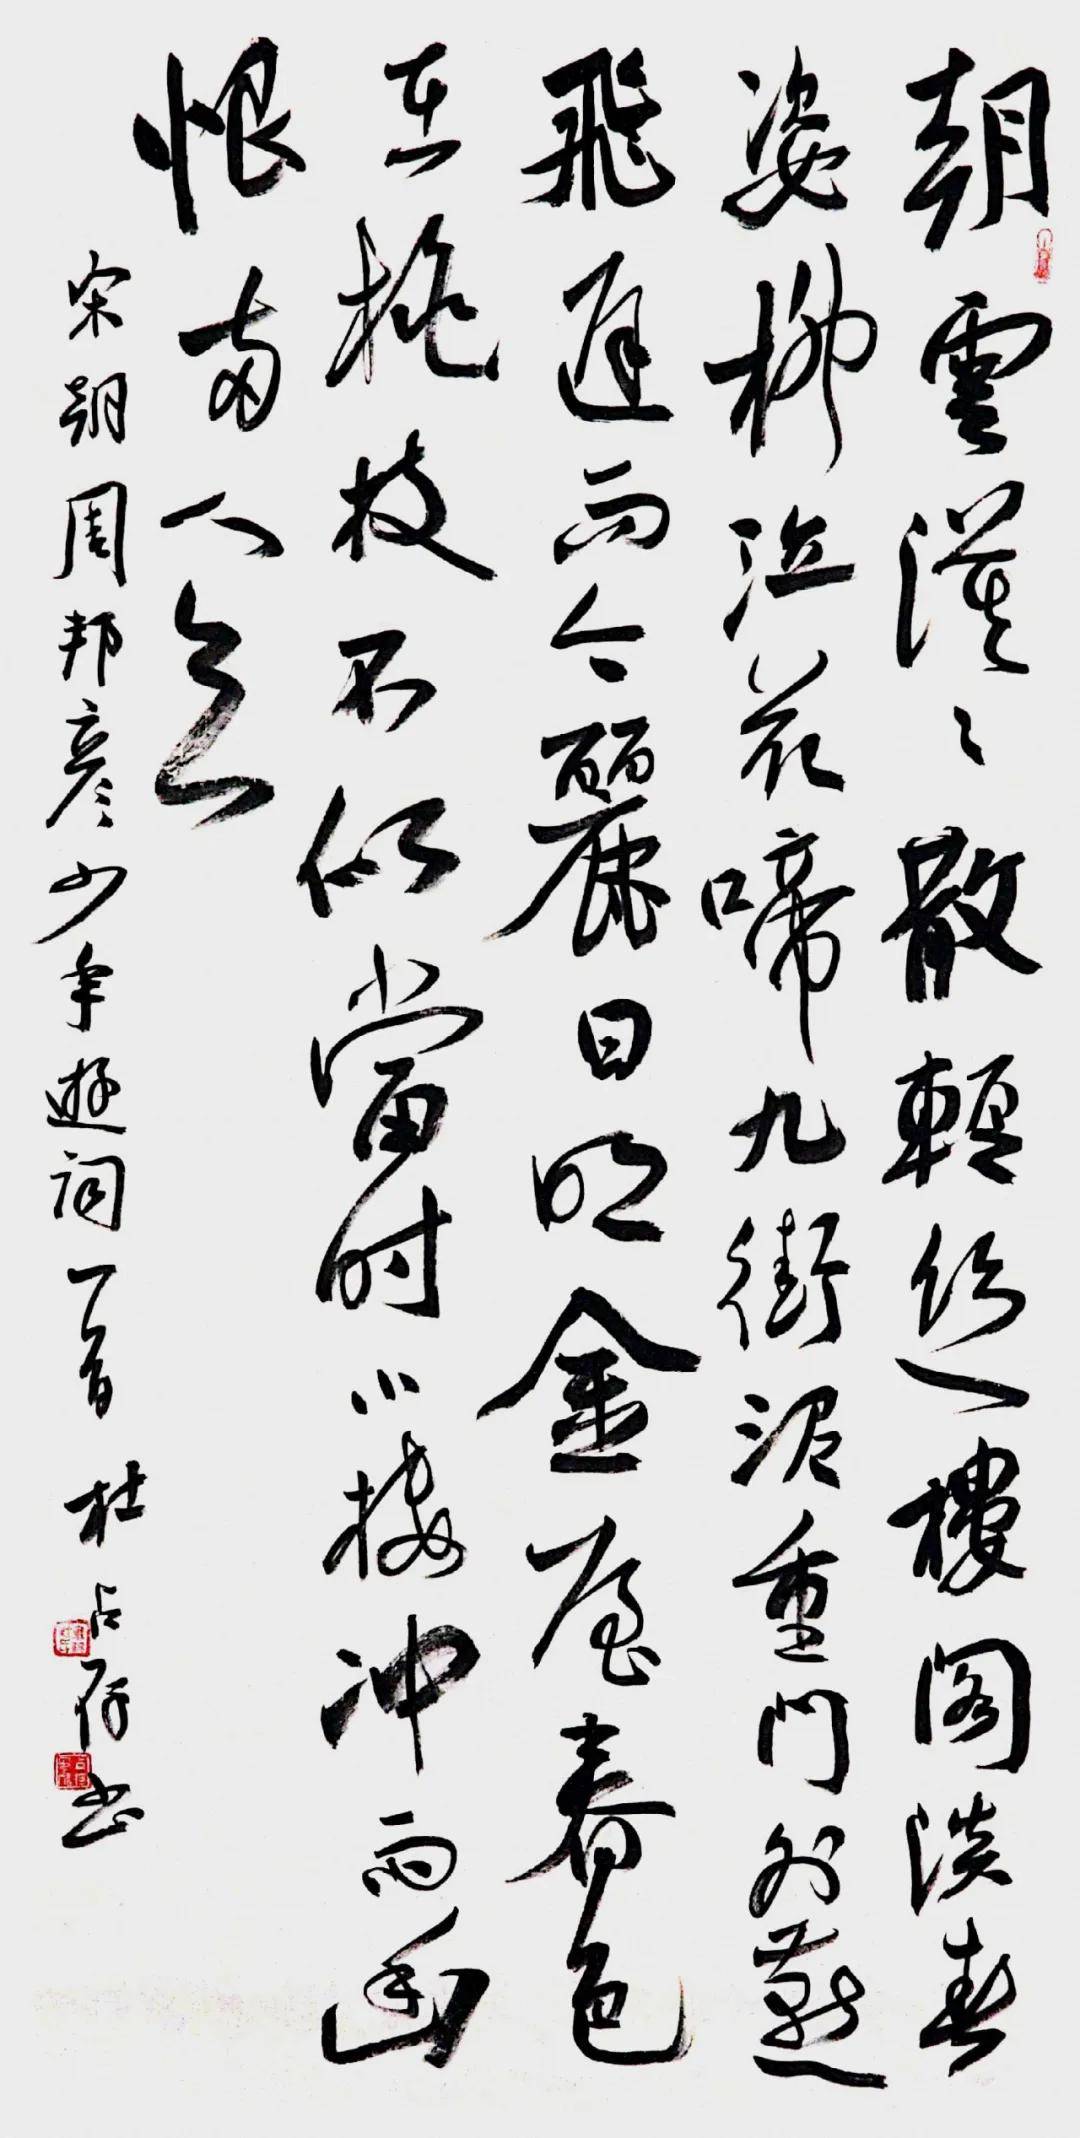 朝雲漠〻散輕絲樓閣淡春
姿柳泣花啼九街泥重門外燕
飛遲而今麗日明金屋春色
在桃枝不似當时小楼冲雨幽
恨両人知
宋朝周邦彦少年遊词一首 杜占书